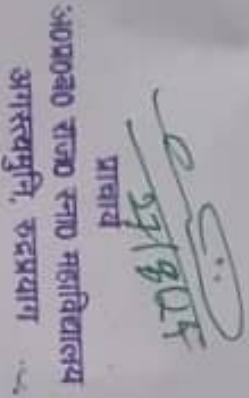 27/8/25
प्राचार्य
अ०प्र०ब० राज० स्ना० महाविद्यालय
अगस्त्यमुनि, रुद्रप्रयाग